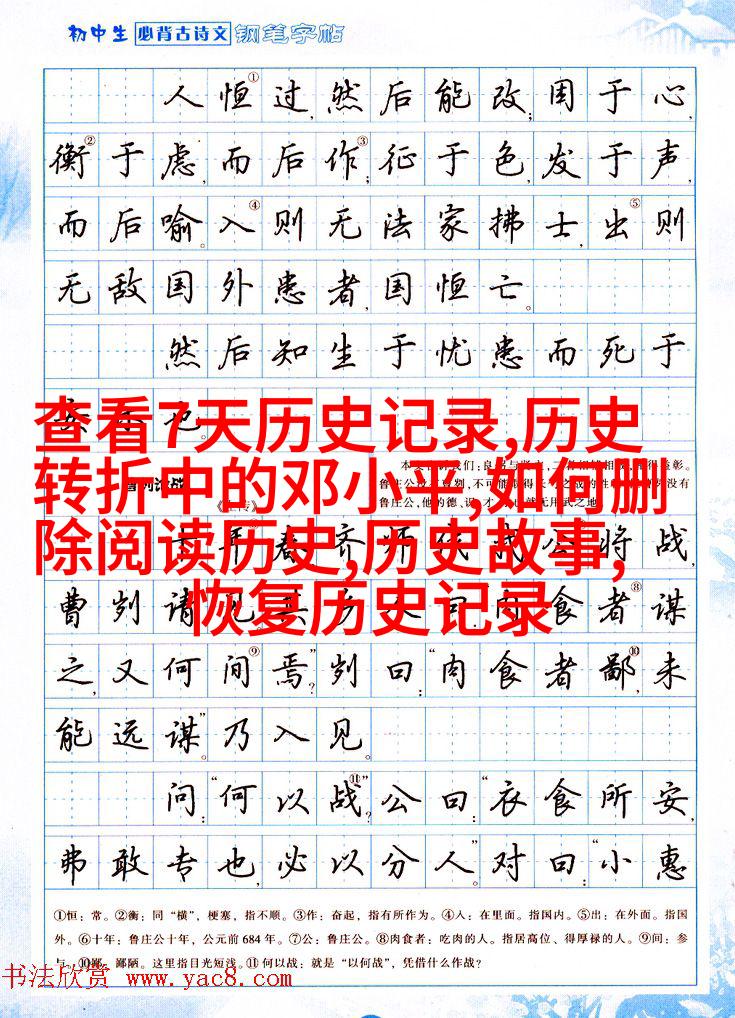 初中生 必背古诗文 钢笔字帖
人恒①过,然后能改;困于心,
衡②于虑,而后作③;征于色,发于声,
而后喻。入④则无法家拂士,出⑤则
无敌国外患者,国恒亡。
然后知生于忧患而死于
查看7天历史记录,历史
转折中的邓小平,如何删
除阅读历史,历史故事,
恢复历史记录
曹刿请见
食者⑧谋
之,又何间⑨焉?”刿曰:“肉食者鄙⑩,未
能远谋。”乃入见。
问:“何以战⑪?”公曰:“衣食所安,
弗敢专也,必以分人。”对曰:“小惠
①恒:常。②衡:同“横”,梗塞,指不顺。③作:奋起,指有所作为。④入:在里面。指国内。⑤出:在外面。指国
外。⑥十年:鲁庄公十年,公元前684年。⑦公:鲁庄公。⑧肉食者:吃肉的人。指居高位、得厚禄的人。⑨间:参
与。⑩鄙:鄙陋。这里指目光短浅。⑪何以战:就是“以何战”,凭借什么作战?
书法欣赏 www.yac8.com